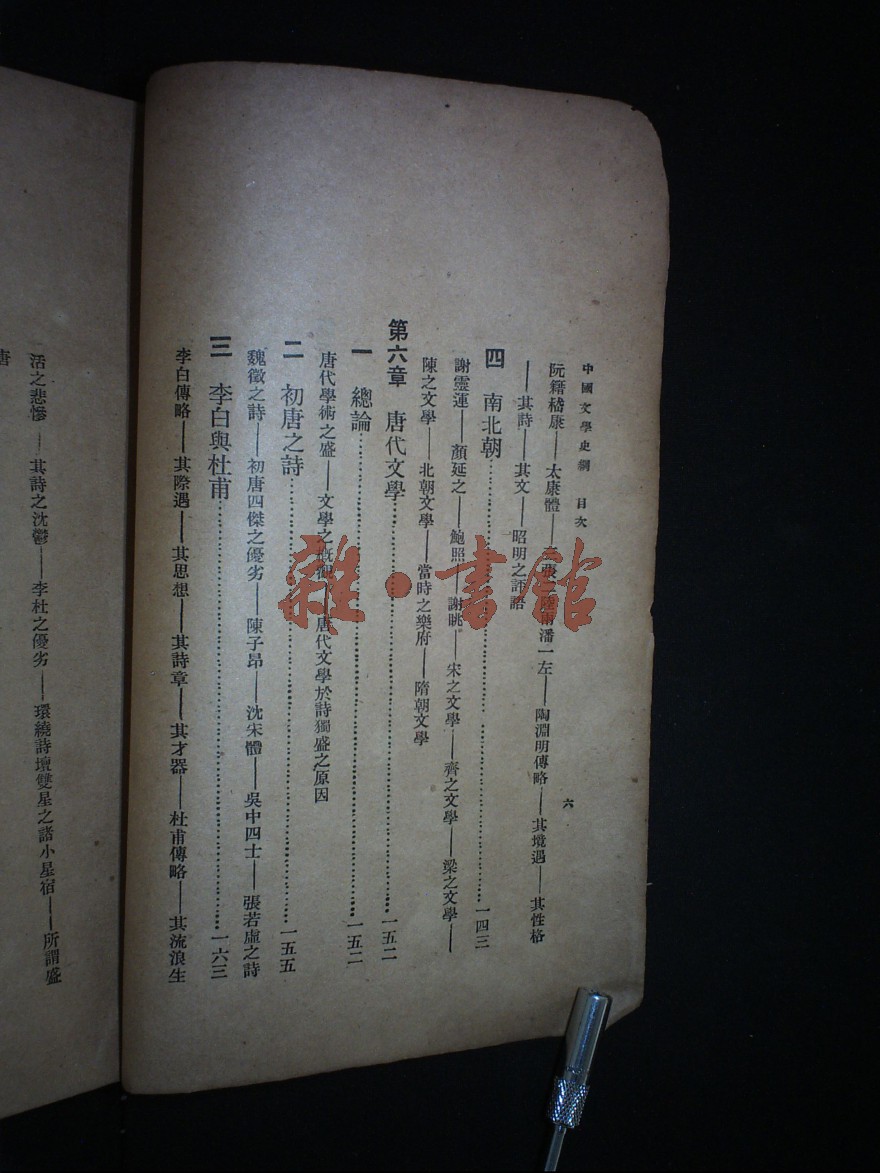 中國文學史綱 目次 六
阮籍嵇康——太康體——三張二陸兩潘一左——陶淵明傳略——其境遇——其性格
——其詩——其文——昭明之評語
四 南北朝……一四三
謝靈運——顏延之——鮑照——謝眺——宋之文學——齊之文學——梁之文學——
陳之文學——北朝文學——當時之樂府——隋朝文學
第六章 唐代文學……一五二
一 總論……一五二
唐代學術之盛——文學之概觀——唐代文學於詩獨盛之原因
二 初唐之詩……一五五
魏徵之詩——初唐四傑之優劣——陳子昂——沈宋體——吳中四士——張若虛之詩
三 李白與杜甫……一六三
李白傳略——其際遇——其思想——其詩章——其才器——杜甫傳略——其流浪生
活之悲慘——其詩之沈鬱——李杜之優劣——環繞詩壇雙星之諸小星宿——所謂盛
唐
雜·書館